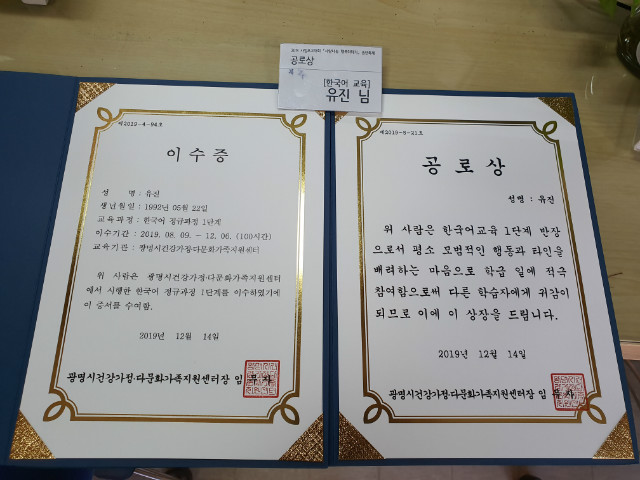 공로상
[한국어 교육]
유진 님
제2019-4-94호
이수증
성 명 : 유진
생년월일 : 1992년 05월 22일
교육과정 : 한국어 정규과정 1단계
이수기간 : 2019. 08. 09. ~ 12. 06. (100시간)
교육기관 : 광명시건강가정·다문화가족지원센터
위 사람은 광명시건강가정·다문화가족지원센터
에서 시행한 한국어 정규과정 1단계를 이수하였기에
이 증서를 수여함.
2019년 12월 14일
광명시건강가정·다문화가족지원센터장 임
제2019-5-21호
공로상
성명 : 유진
위 사람은 한국어교육 1단계 반장
으로서 평소 모범적인 행동과 타인을
배려하는 마음으로 학급 일에 적극
참여함으로써 다른 학습자에게 귀감이
되므로 이에 이 상장을 드립니다.
2019년 12월 14일
광명시건강가정·다문화가족지원센터장 임